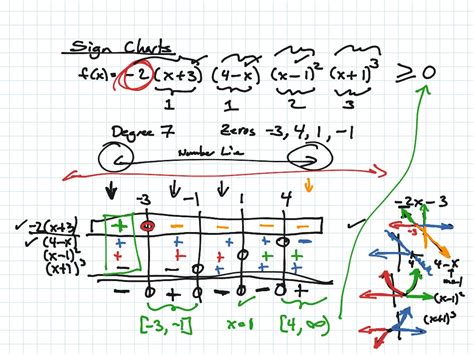 Sign Charts
f(x) = -2 (x+3) (4-x) (x-1)² (x+1)³ ≥ 0
1 1 2 3
Degree 7 Zeros -3, 4, 1, -1
Number Line
-3 -1 1 4
-2(x+3) + 0 - - - -
(4-x) + + + + 0 -
(x-1)² + + + 0 + +
(x+1)³ - - 0 + + +
- 0 + 0 - 0 - 0 +
[-3, -1] x=1 [4, ∞)
-2x-3
-3
4-x
m=-1
(x-1)²
(x+1)³